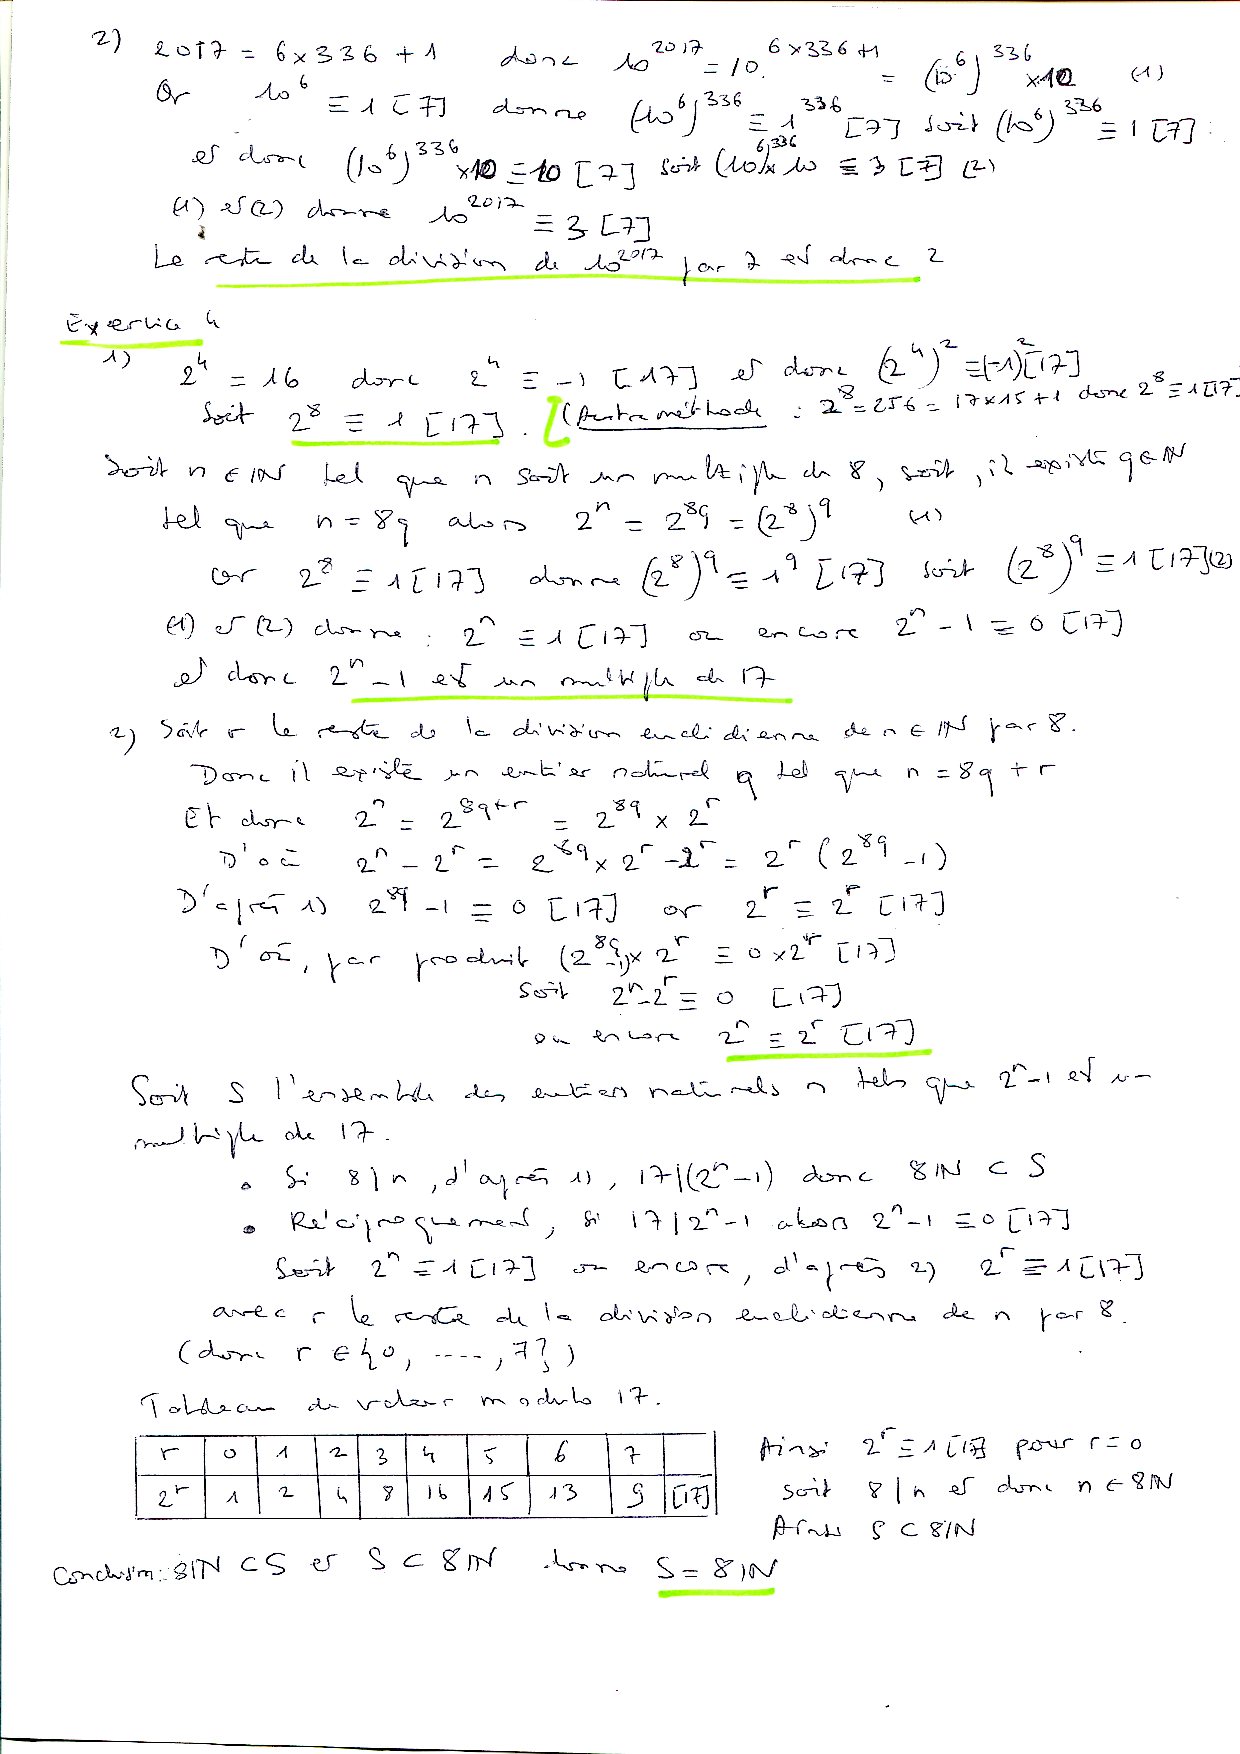 2) 2017 = 6 x 336 + 1 donc 10^2017 = 10^(6 x 336 + 1) = (10^6)^336 x 10 (1)
Or 10^6 ≡ 1 [7] donne (10^6)^336 ≡ 1^336 [7] soit (10^6)^336 ≡ 1 [7] :
et donc (10^6)^336 x 10 ≡ 10 [7] soit (10^6)^336 x 10 ≡ 3 [7] (2)
(1) et (2) donne 10^2017 ≡ 3 [7]
Le reste de la division de 10^2017 par 7 est donc 2
Exercice 4
1) 2^4 = 16 donc 2^4 ≡ -1 [17] et donc (2^4)^2 ≡ (-1)^2 [17]
Soit 2^8 ≡ 1 [17]. [(Autre méthode : 2^8 = 256 = 17 x 15 + 1 donc 2^8 ≡ 1 [17]
Soit n ∈ IN tel que n soit un multiple de 8, soit, il existe q ∈ IN
tel que n = 8q alors 2^n = 2^8q = (2^8)^q (1)
or 2^8 ≡ 1 [17] donne (2^8)^q ≡ 1^q [17] soit (2^8)^q ≡ 1 [17] (2)
(1) et (2) donne : 2^n ≡ 1 [17] ou encore 2^n - 1 ≡ 0 [17]
et donc 2^n - 1 est un multiple de 17
2) Soit r le reste de la division euclidienne de n ∈ IN par 8.
Donc il existe un entier naturel q tel que n = 8q + r
Et donc 2^n = 2^(8q+r) = 2^8q x 2^r
D'où 2^n - 2^r = 2^8q x 2^r - 2^r = 2^r (2^8q - 1)
D'après 1) 2^8q - 1 ≡ 0 [17] or 2^r ≡ 2^r [17]
D'où, par produit (2^8q - 1) x 2^r ≡ 0 x 2^r [17]
Soit 2^n - 2^r ≡ 0 [17]
ou encore 2^n ≡ 2^r [17]
Soit S l'ensemble des entiers naturels n tels que 2^n - 1 est un
multiple de 17.
• Si 8 | n, d'après 1), 17 | (2^n - 1) donc 8IN ⊂ S
• Réciproquement, si 17 | 2^n - 1 alors 2^n - 1 ≡ 0 [17]
Soit 2^n ≡ 1 [17] ou encore, d'après 2) 2^r ≡ 1 [17]
avec r le reste de la division euclidienne de n par 8.
(donc r ∈ {0, ...., 7})
Tableau de valeur modulo 17.
r 0 1 2 3 4 5 6 7
2^r 1 2 4 8 16 15 13 9 [17]
Ainsi 2^r ≡ 1 [17] pour r = 0
soit 8 | n et donc n ∈ 8IN
Ainsi S ⊂ 8IN
Conclusion : 8IN ⊂ S et S ⊂ 8IN donne S = 8IN